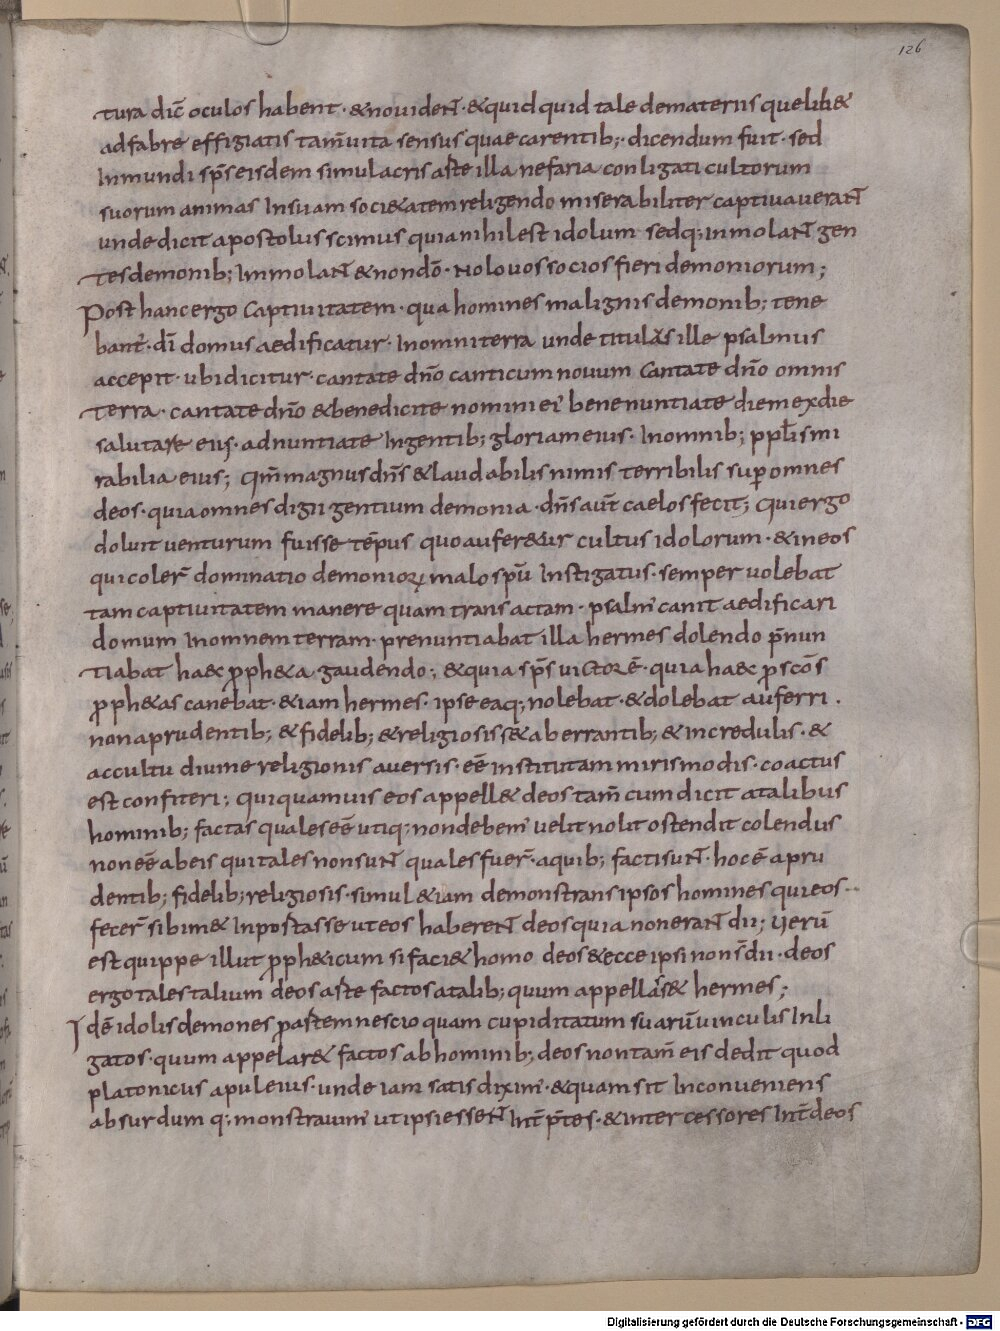 126
tura dic̄ oculos habent · & non uident · & quid quid tale de materiis quelib&
adfabre effigiatis tam̄ uita sensus quae carentib; · dicendum fuit · sed
Inmundi sp̄s eisdem simulacris arte illa nefaria conligati cultorum
suorum animas Insuam soci&atem religendo miserabiliter captiuauerant
unde dicit apostolus scimus quia nihil est idolum sed q; inmolant gen
tes demonib; Immolant & non dō · Nolo uos socios fieri demoniorum;
Post hanc ergo Captiuitatem · qua homines malignis demonib; tene
bant̄ · dī domus aedificatur · Inomni terra unde titulus ille psalmus
accepit · ubi dicitur · cantate dn̄o canticum nouum Cantate dn̄o omnis
terra · cantate dn̄o & benedicite nomini ei' bene nuntiate diem exdie
salutare eius · adnuntiate Ingentib; gloriam eius · Inomnib; pplis mi
rabilia eius; qm̄ magnus dn̄s & laudabilis nimis terribilis super omnes
deos · quia omnes digii gentium demonia · dn̄s aut̄ caelos fecit; Qui ergo
doluit uenturum fuisse tēpus quo aufer&ur cultus idolorum · & ineos
qui coler̄ dominatio demoniorꝝ malo spū Instigatus · semper uolebat
tam captiuitatem manere quam transactam · psalm' canit aedificari
domum Inomnem terram · prenuntiabat illa hermes dolendo p̄nun
tiabat haec proph&a gaudendo; & quia sp̄s uictor ē · quia haec p̄ scōs
proph&as canebat · & iam hermes · ipse ea q; nolebat · & dolebat auferri ·
non aprudentib; & fidelib; & religiosis s& aberrantib; & incredulis · &
accultu diuine religionis auersis · eē institutam miris modis · coactus
est confiteri; qui quamuis eos appell& deos tam̄ cum dicit atalibus
hominib; factas quales eē utiq; non debem' uelit nolit ostendit colendus
non eē abeis qui tales non sunt quales fuer̄ · aquib; facti sunt · hoc ē apru
dentib; fidelib; religiosis · simul & iam demonstrans ipsos homines qui eos
fecer̄ sibim& Inportasse ut eos haberent deos quia non erant dii; uerū
est quippe illut proph&icum si faci& homo deos & ecce ipsi non s̄ dii · deos
ergo tales talium deos arte factos atalib; quum appellas& hermes;
Id ē idolis demones p artem nescio quam cupiditatum suarū uinculis Inli
gatos · quum appelar& factos ab hominib; deos non tam̄ eis dedit quod
platonicus apuleius · unde iam satis dixim' · & quam sit Inconueniens
absurdum q; monstrauim' ut ipsi essent Int̄ p̄tes · & intercessores Int̄ deos
Digitalisierung gefördert durch die Deutsche Forschungsgemeinschaft - DFG